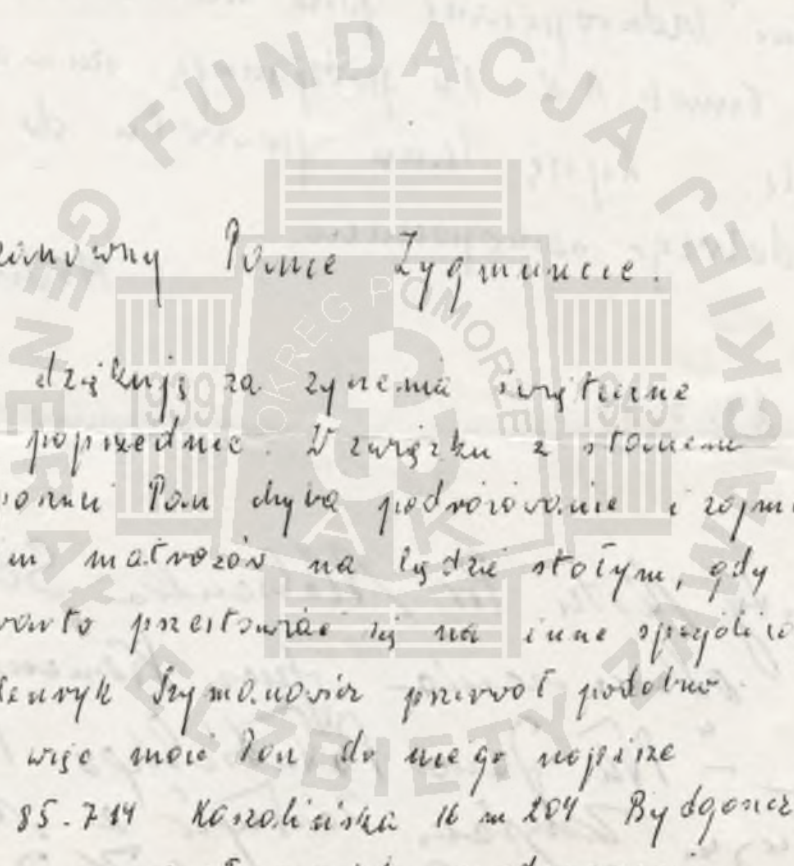 FUNDACJA GENERAŁ ELŻBIETY ZAWACKIEJ
OKRĘG POMORZE
1939 1945
AK
zanowny Panie Zygmuncie.
dziękuję za życzenia świąteczne
poprzednie. W związku z stanem
Pan chyba podróżowanie i zajm
matrozów na lądzie stałym, gdy
warto przestawiać się na inne
Henryk Szymanowicz przerwał podobno
więc może Pan do niego napisze
85-714 Koszalińska 16 m 204 Bydgoszcz